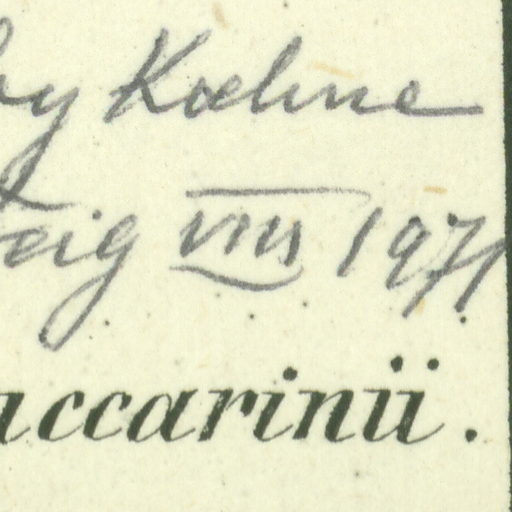 by Koehne
eig VIII 1971
accarinii.